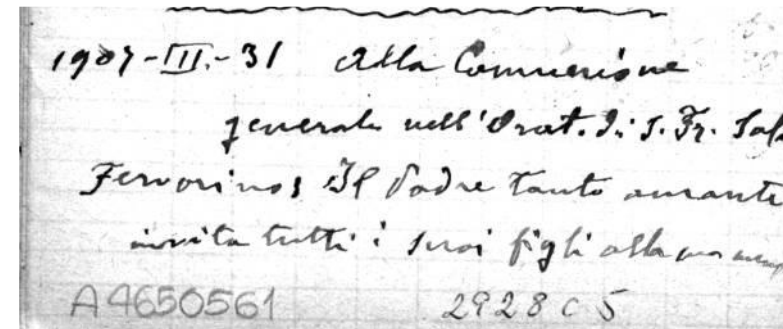 1907-III.-31 Alla Comunione
generale nell'Orat. di S. Fr. Sal
Fervorino: Il Padre tanto amante
invita tutti i suoi figli alla sua
A4650561 2928C5